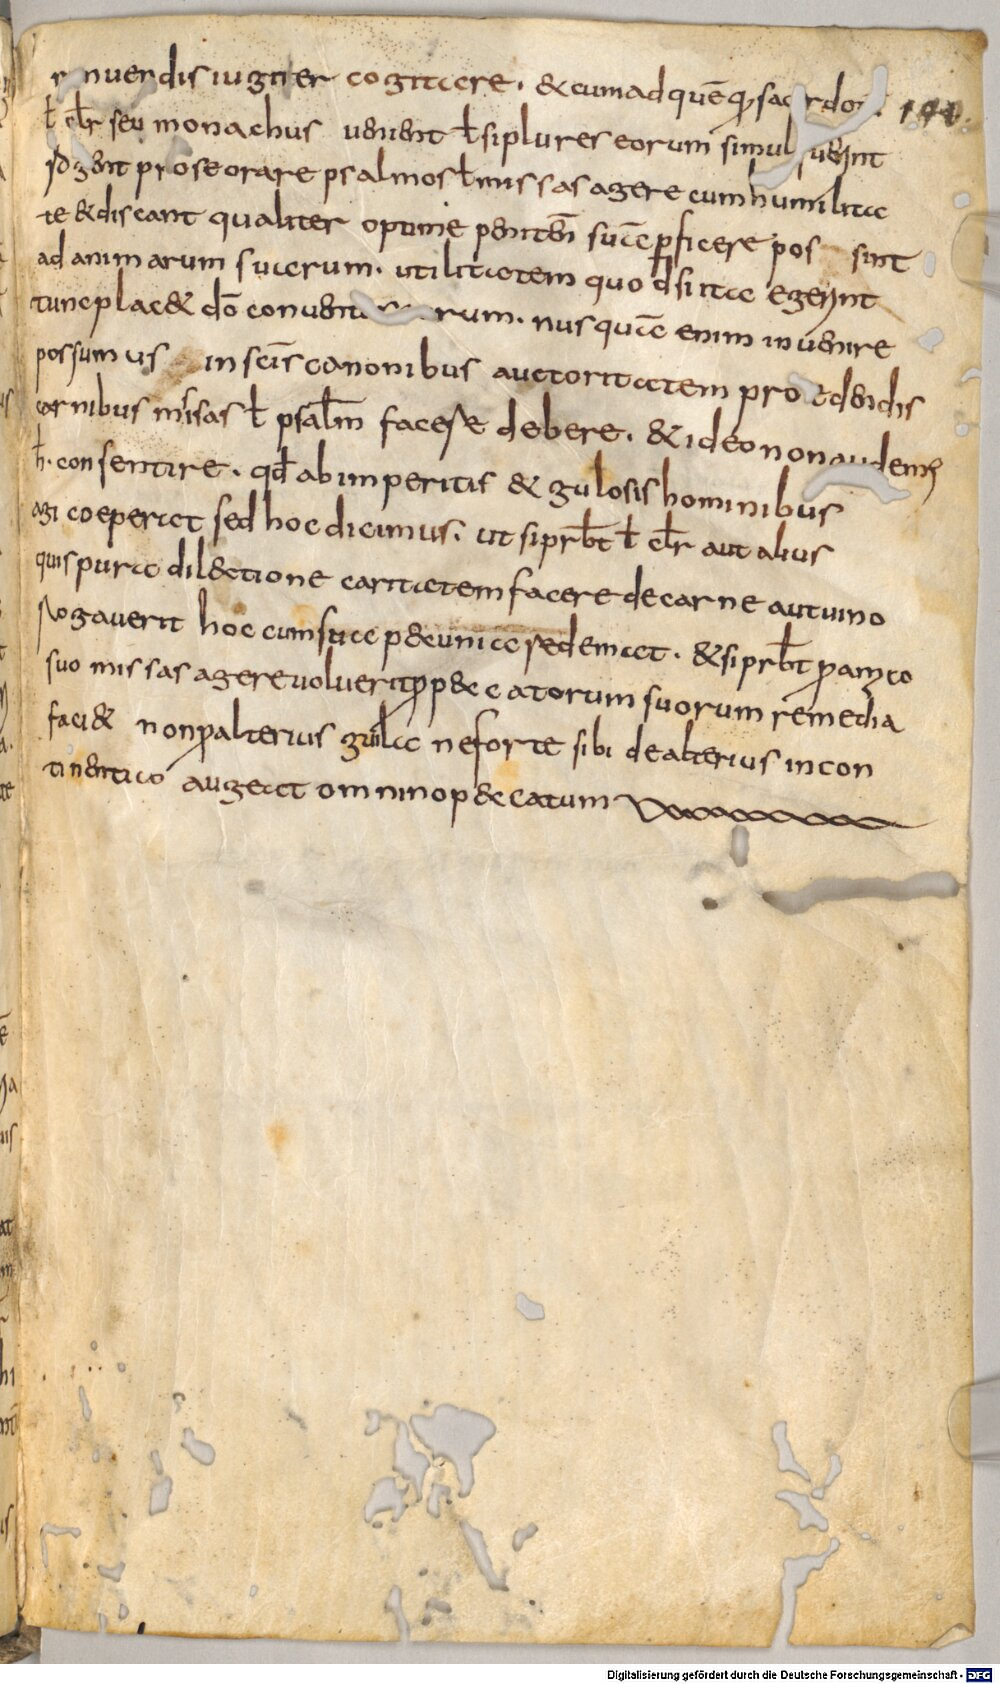 nuendis iugiter cogitare. & cum ad quē q; sacerdo 140.
ł clr̄ seu monachus uenent ł si plures eorum simul fuer̄nt
rogent pro se orare psalmos ł missas agere cum humilita
te & discant qualiter optime peniten̄ suā ꝑficere pos sint
ad animarum suarum. utilitatem quod si ita egerint
tunc plac& dō conuent rum. nusquā enim inuenire
possumus in scīs canonibus auctoritatem pro edendis
carnibus missas ł psal̄m facere debere. & ideo non audem;
h̄. consentire. qd̄ ab imperitis & gulosis hominibus
agi coeperat sed hoc dicimus. ut si prb̄t ł clr̄ aut alius
quis pura dil&tione caritatem facere de carne aut uino
rogauerit hoc cum sua pecunia redemat. & si prb̄t ꝓ amico
suo missas agere uoluerit ꝓ p&catorum suorum remedia
faci& non ꝓ alterius gula ne forte sibi de alterius incon
tinentia augeat omnino p&catum
Digitalisierung gefördert durch die Deutsche Forschungsgemeinschaft - DFG